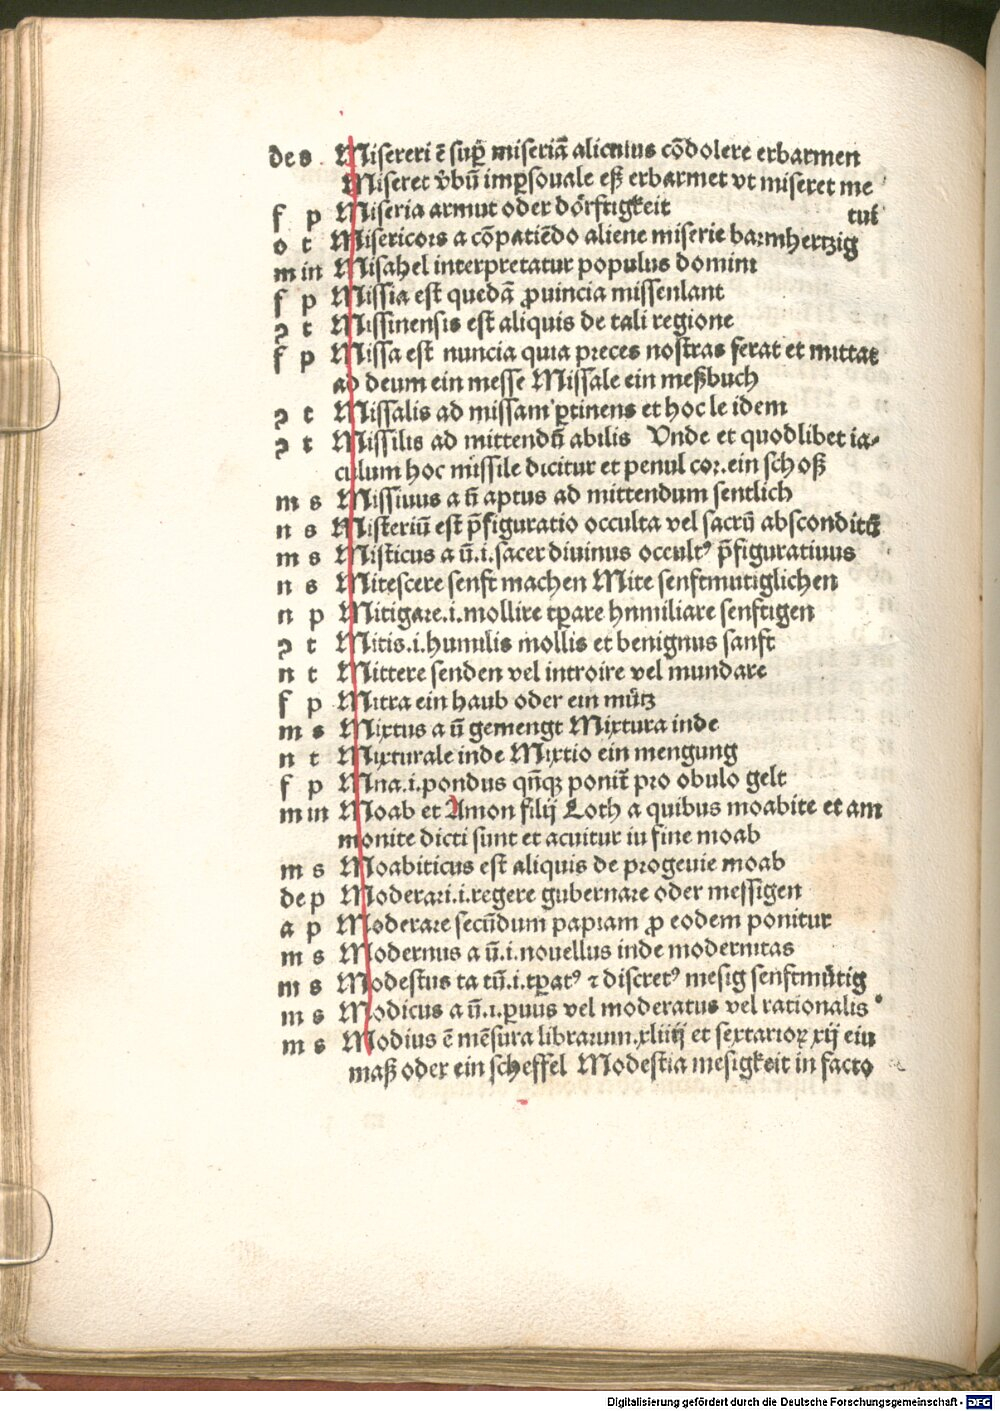 de s Misereri ē suꝑ miseriā alicuius cōdolere erbarmen
Miseret v̄bū imꝑsonale eß erbarmet vt miseret me
f p Miseria armut oder dörftigkeit tui
o t Misericors a cōpatiēdo aliene miserie barmhertzig
m in Misahel interpretatur populus domini
f p Missia est quedā ꝓuincia missenlant
ꝯ t Missinensis est aliquis de tali regione
f p Missa est nuncia quia preces nostras ferat et mittat
ad deum ein messe Missale ein meßbuch
ꝯ t Missalis ad missam ꝑtinens et hoc le idem
ꝯ t Missilis ad mittendū abilis Vnde et quodlibet ia-
culum hoc missile dicitur et penul cor. ein schoß
m s Missiuus a ū aptus ad mittendum sentlich
n s Misteriū est p̄figuratio occulta vel sacrū absconditū
m s Misticus a ū .i. sacer diuinus occultꝰ p̄figuratiuus
n s Mitescere senft machen Mite senftmutiglichen
n p Mitigare .i. mollire tꝑare hnmiliare senftigen
ꝯ t Mitis .i. humilis mollis et benignus sanft
n t Mittere senden vel introire vel mundare
f p Mitra ein haub oder ein mütz
m s Mixtus a ū gemengt Mixtura inde
n t Mixturale inde Mixtio ein mengung
f p Mna .i. pondus qn̄qꝫ ponit̄ pro obulo gelt
m in Moab et Amon filij Loth a quibus moabite et am
monite dicti sunt et acuitur in fine moab
m s Moabiticus est aliquis de progenie moab
de p Moderari .i. regere gubernare oder messigen
a p Moderare secūdum papiam ꝓ eodem ponitur
m s Modernus a ū .i. nouellus inde modernitas
m s Modestus ta tū .i. tꝑatꝰ ⁊ discretꝰ mesig senftmütig
m s Modicus a ū .i. ꝑuus vel moderatus vel rationalis
m s Modius ē mēsura librarum .xliiij et sextarioꝝ xij ein
maß oder ein scheffel Modestia mesigkeit in facto
Digitalisierung gefördert durch die Deutsche Forschungsgemeinschaft - DFG